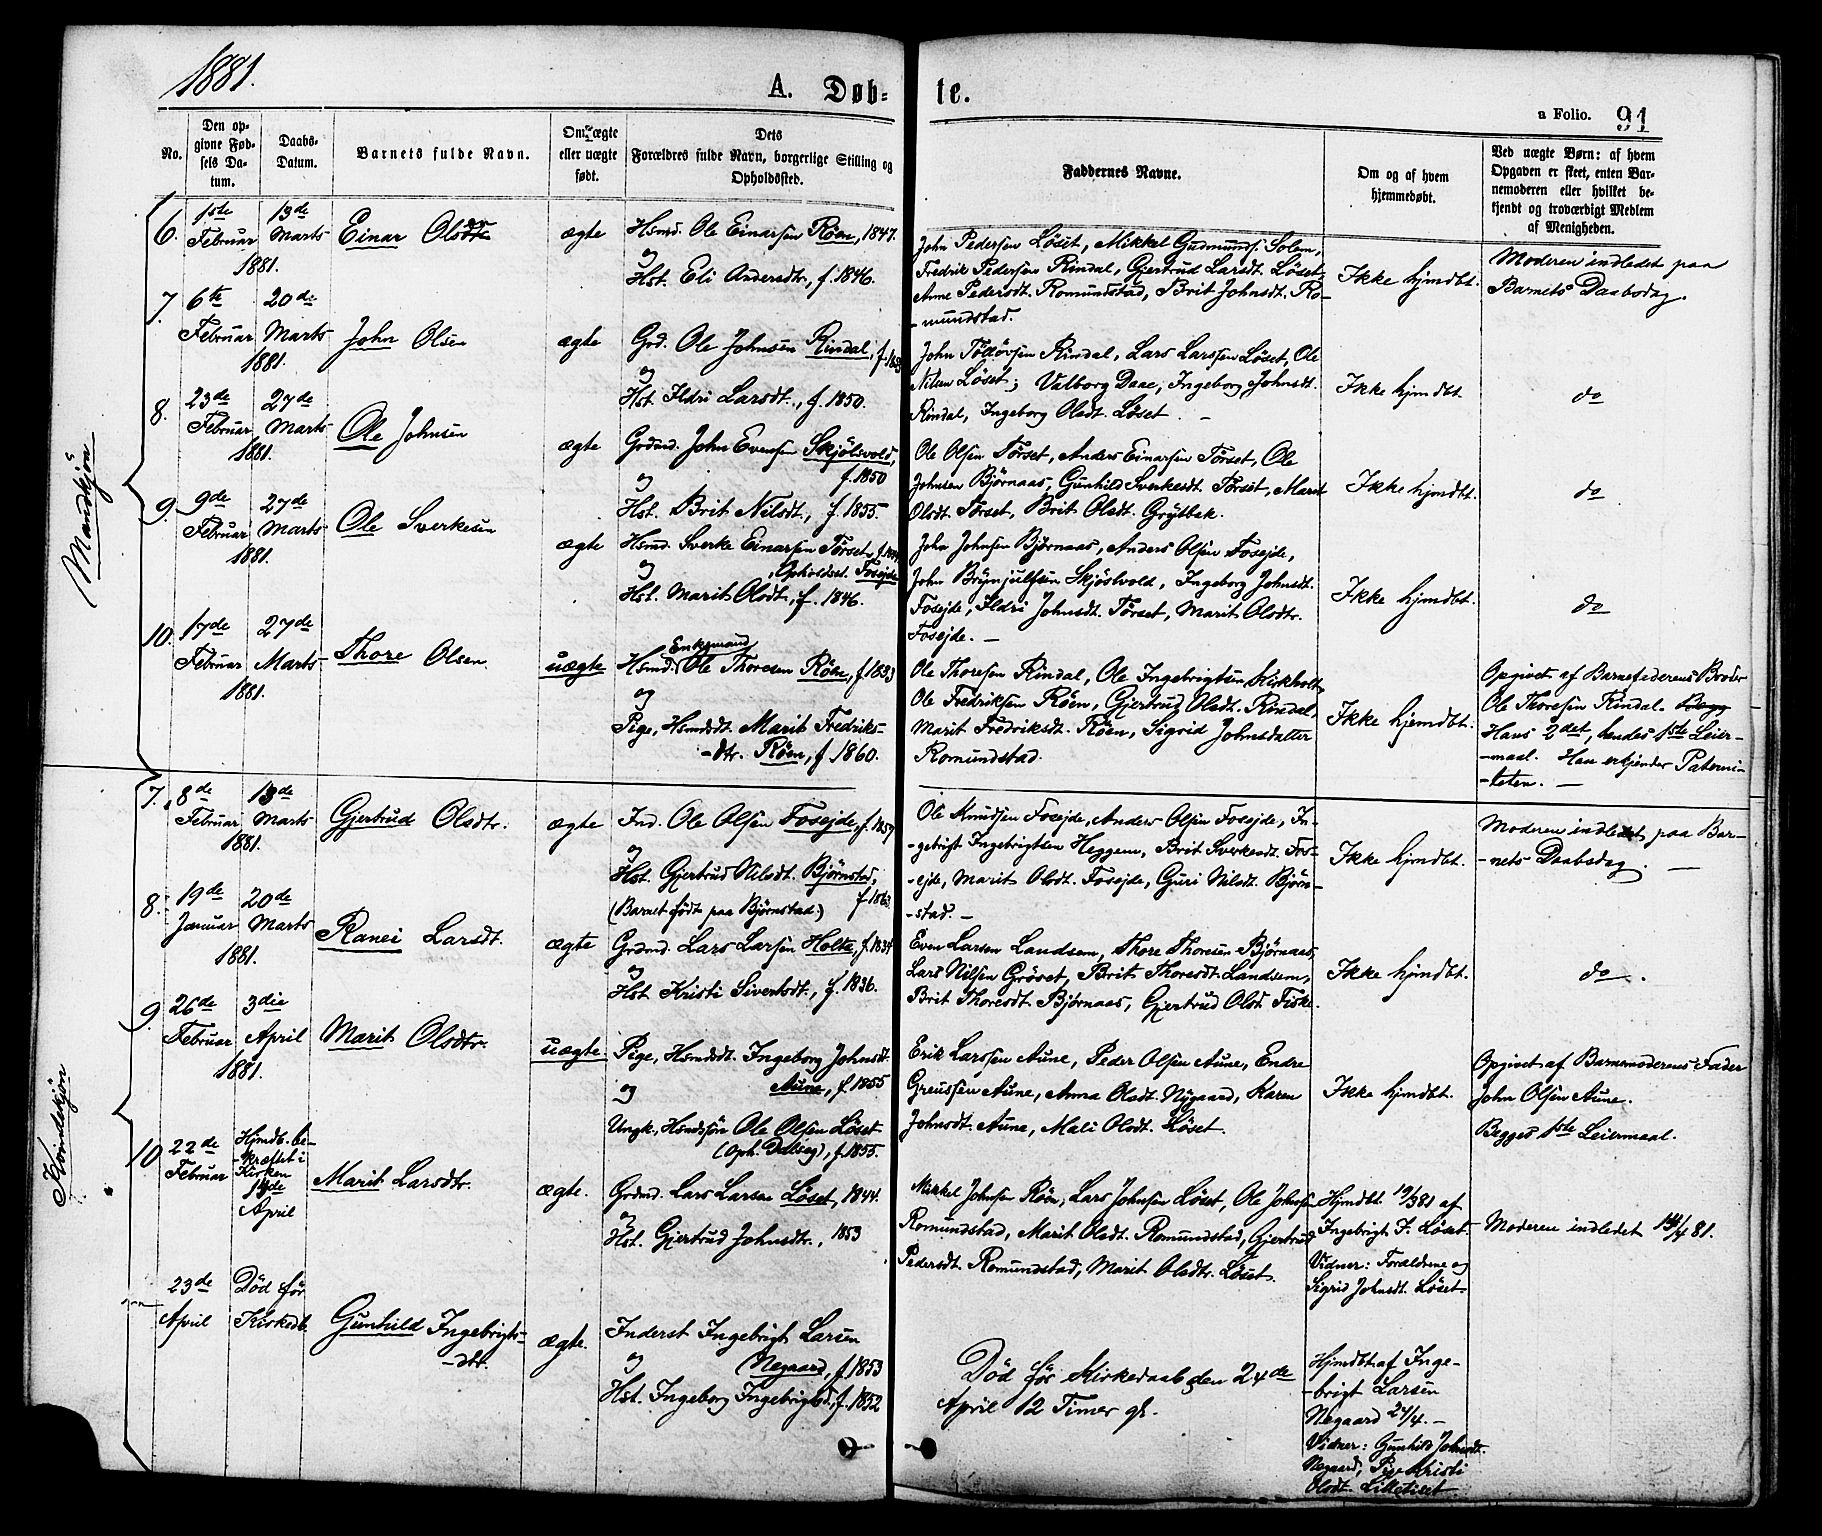 1881.
A. Døb-
te.
a Folio. 91
No.
Den op-
givne Fød-
sels Da-
tum.
Daabs-
Datum.
Barnets fulde Navn.
Om ægte
eller uægte
født.
Dets
Forældres fulde Navn, borgerlige Stilling og
Opholdssted.
Faddernes Navne.
Om og af hvem
hjemmedøbt.
Ved uægte Børn: af hvem
Opgaven er skeet, enten Bar-
nemoderen eller hvilket be-
kjendt og troværdigt Medlem
af Menigheden.
Mandkjøn
6.
1ste
Februar
13de
Marts
1881.
Einar
ægte
Hsmd. Ole Einarsen Røen, 1847.
og
Hst. Eli Andersdtr, f. 1846.
John Pedersen Løset, Mikkel Gudmunds. Solem,
Fredrik Pedersen Rindal, Gjertrud Larsdt. Løset,
Anne Pedersdt. Romundstad, Brit Johnsdt. Ro-
-mundstad.
Ikke hjmdbt.
Moderen indledet paa
Barnets Daabsdag.
7.
6te
Februar
20de
Marts
1881.
John Olsen
ægte
Grd. Ole Johnsen Rindal,
og
Hst. Ildri Larsdt., f. 1850.
John Rindal, Lars Larssen Løset, Ole
Nilsen Løset; Valborg Daae, Ingeborg Johnsdt.
Rindal, Ingeborg Olsdt. Løset. -
Ikke hjmdbt.
do
8.
23de
Februar
27de
Marts
1881.
Ole Johnsen
ægte
Grdmd. John Evensen Skjølsvold,
f. 1850
og
Hst. Brit Nilsdt., f. 1855.
Ole Olsen Tørset, Anders Einarsen Tørset, Ole
Johnsen Bjørnaas, Gunhild Sverkesdt. Tørset, Marit
Olsdt. Tørset, Brit Olsdt. Grytbak.
Ikke hjmdbt.
do
9.
9de
Februar
27de
Marts
1881.
Ole Sverkesen
ægte
Hsmd. Sverke Einarsen Tørset,
Opholdsst. Fosejde
og
Hst. Marit Olsdt., f. 1846.
John Johnsen Bjørnaas, Anders Olsen Fosejde,
John Brynjulfsen Skjølsvold, Ingeborg Johnsdt.
Fosejde, Ildri Johnsdt. Tørset, Marit Olsdtr.
Fosejde. -
Ikke hjmdbt.
do
10.
17de
Februar
27de
Marts
1881.
Thore Olsen
uægte
Enkemand
Hsmd. Ole Thoresen Røen, f. 1833
og
Pige, Hsmdsdt. Marit Fredriks-
-dtr. Røen, f. 1860.
Ole Thoresen Rindal, Ole Ingebrigtsen Kirkholt,
Ole Fredriksen Røen, Gjertrud Olsdt. Rindal,
Marit Fredriksdt. Røen, Sigrid Johnsdatter
Romundstad.
Ikke hjemdbt.
Opgivet af Barnefaderens Broder
Ole Thoresen Rindal.
Hans 2det, hendes 1ste Leier-
-maal. Han erkjender Paterni-
-teten. -
Kvindekjøn
7.
8de
Februar
13de
Marts
1881.
Gjertrud Olsdtr.
ægte
Ind. Ole Olsen Fosejde, f. 1857
og
Hst. Gjertrud Nilsdt. Bjørnstad,
(Barnet født paa Bjørnstad.)
Ole Knudsen Fosejde, Anders Olsen Fosejde, In-
-gebrigt Ingebrigtsen Heggem, Brit Sverkesdt. Fos-
-ejde, Marit Olsdt. Fosejde, Guri Nilsdt. Bjørn-
-stad. -
Ikke hjmdbt.
Moderen indledet paa Bar-
-nets Daabsdag. -
8.
19de
Januar
20de
Marts
1881.
Ranei Larsdt.
ægte
Grdmd. Lars Larsen Holte, f. 1834
og
Hst. Kristi Sivertsdt., f. 1836.
Even Larsen Landsem, Thore Thoresen Bjørnaas,
Lars Nilsen Grøset, Brit Thoresdt. Landsem,
Brit Thoresdt. Bjørnaas, Gjertrud Olsdt. Fiske.
Ikke hjmdbt.
do.
9
26de
Februar
3die
April
1881.
Marit Olsdtr.
uægte
Pige, Hsmdsdt. Ingeborg Johnsdt.
Aune, f. 1855
og
Ungk., Hsmdsøn Ole Olsen Løset
(Oph. Dalseg), f. 1855.
Erik Larssen Aune, Peder Olsen Aune, Endre
Greussen Aune, Anna Olsdt. Nygaard, Karen
Johnsdt. Aune, Mali Olsdt. Løset.
Ikke hjmdbt.
Opgivet af Barnemoderens Fader
John Olsen Aune.
Begges 1ste Leiermaal.
10
22de
Februar
Hjmdb. be-
-kræftet i
Kirken
April
Marit Larsdtr.
ægte.
Grdmd. Lars Larsen Løset, 1844.
og
Hst. Gjertrud Johnsdtr., 1853
Mikkel Johnsen Røen, Lars Johnsen Løset, Ole Johnsen
Romundstad, Marit Olsdt. Romundstad, Gjertrud
Pedersdt. Romundstad, Marit Olsdtr. Løset.
Hjmdbt. 19/3 81 af
Ingebrigt F. Løset.
Vidner: Forældrene og
Sigrid Johnsdt. Løset.
Moderen indledet 18/4 81.
23de
April
Død før
Kirkedb.
Gunhild Ingebrigts-
-dtr.
ægte.
Inderst Ingebrigt Larsen
og
Negaard, f. 1853
Hst. Ingeborg Ingebrigtsd., f. 1852
Død før Kirkedaab den 24de
April 12 Timer gl.
Hjmdbt. af Inge-
-brigt Larsen
Negaard 24/4. -
Vidner: Gunhild Johnsdt.
Negaard, Pige Kristi
Olsdt.